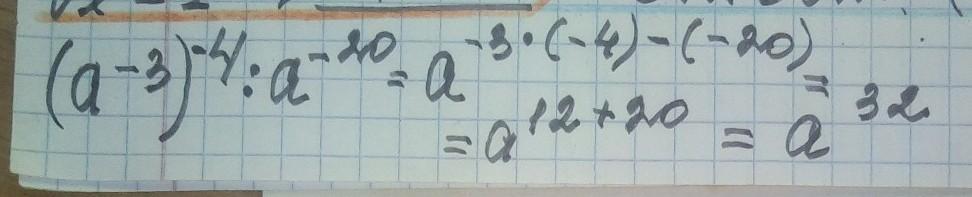 (a⁻³)⁻⁴ : a⁻²⁰ = a⁻³·⁽⁻⁴⁾⁻⁽⁻²⁰⁾ =
= a¹²⁺²⁰ = a³²